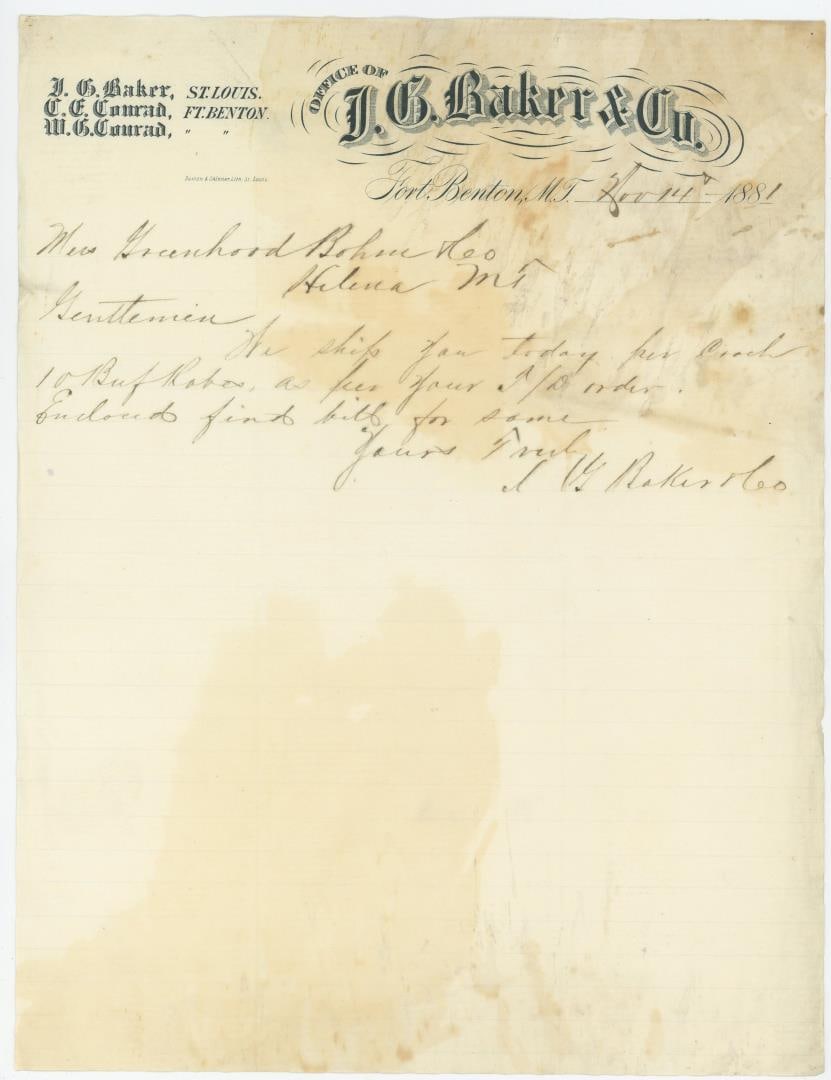 J. G. Baker, ST. LOUIS.
C. E. Conrad, FT. BENTON.
W. G. Conrad, " "
OFFICE OF
J. G. Baker & Co.
Fort Benton, M.T. Nov 14" 1881
Mess Greenhood Bohm & Co
Helena MT
Gentlemen
We ship you today per Coach
10 Buf Robes, as per your order.
Enclosed find bill for same
Yours Truly
I G Baker & Co